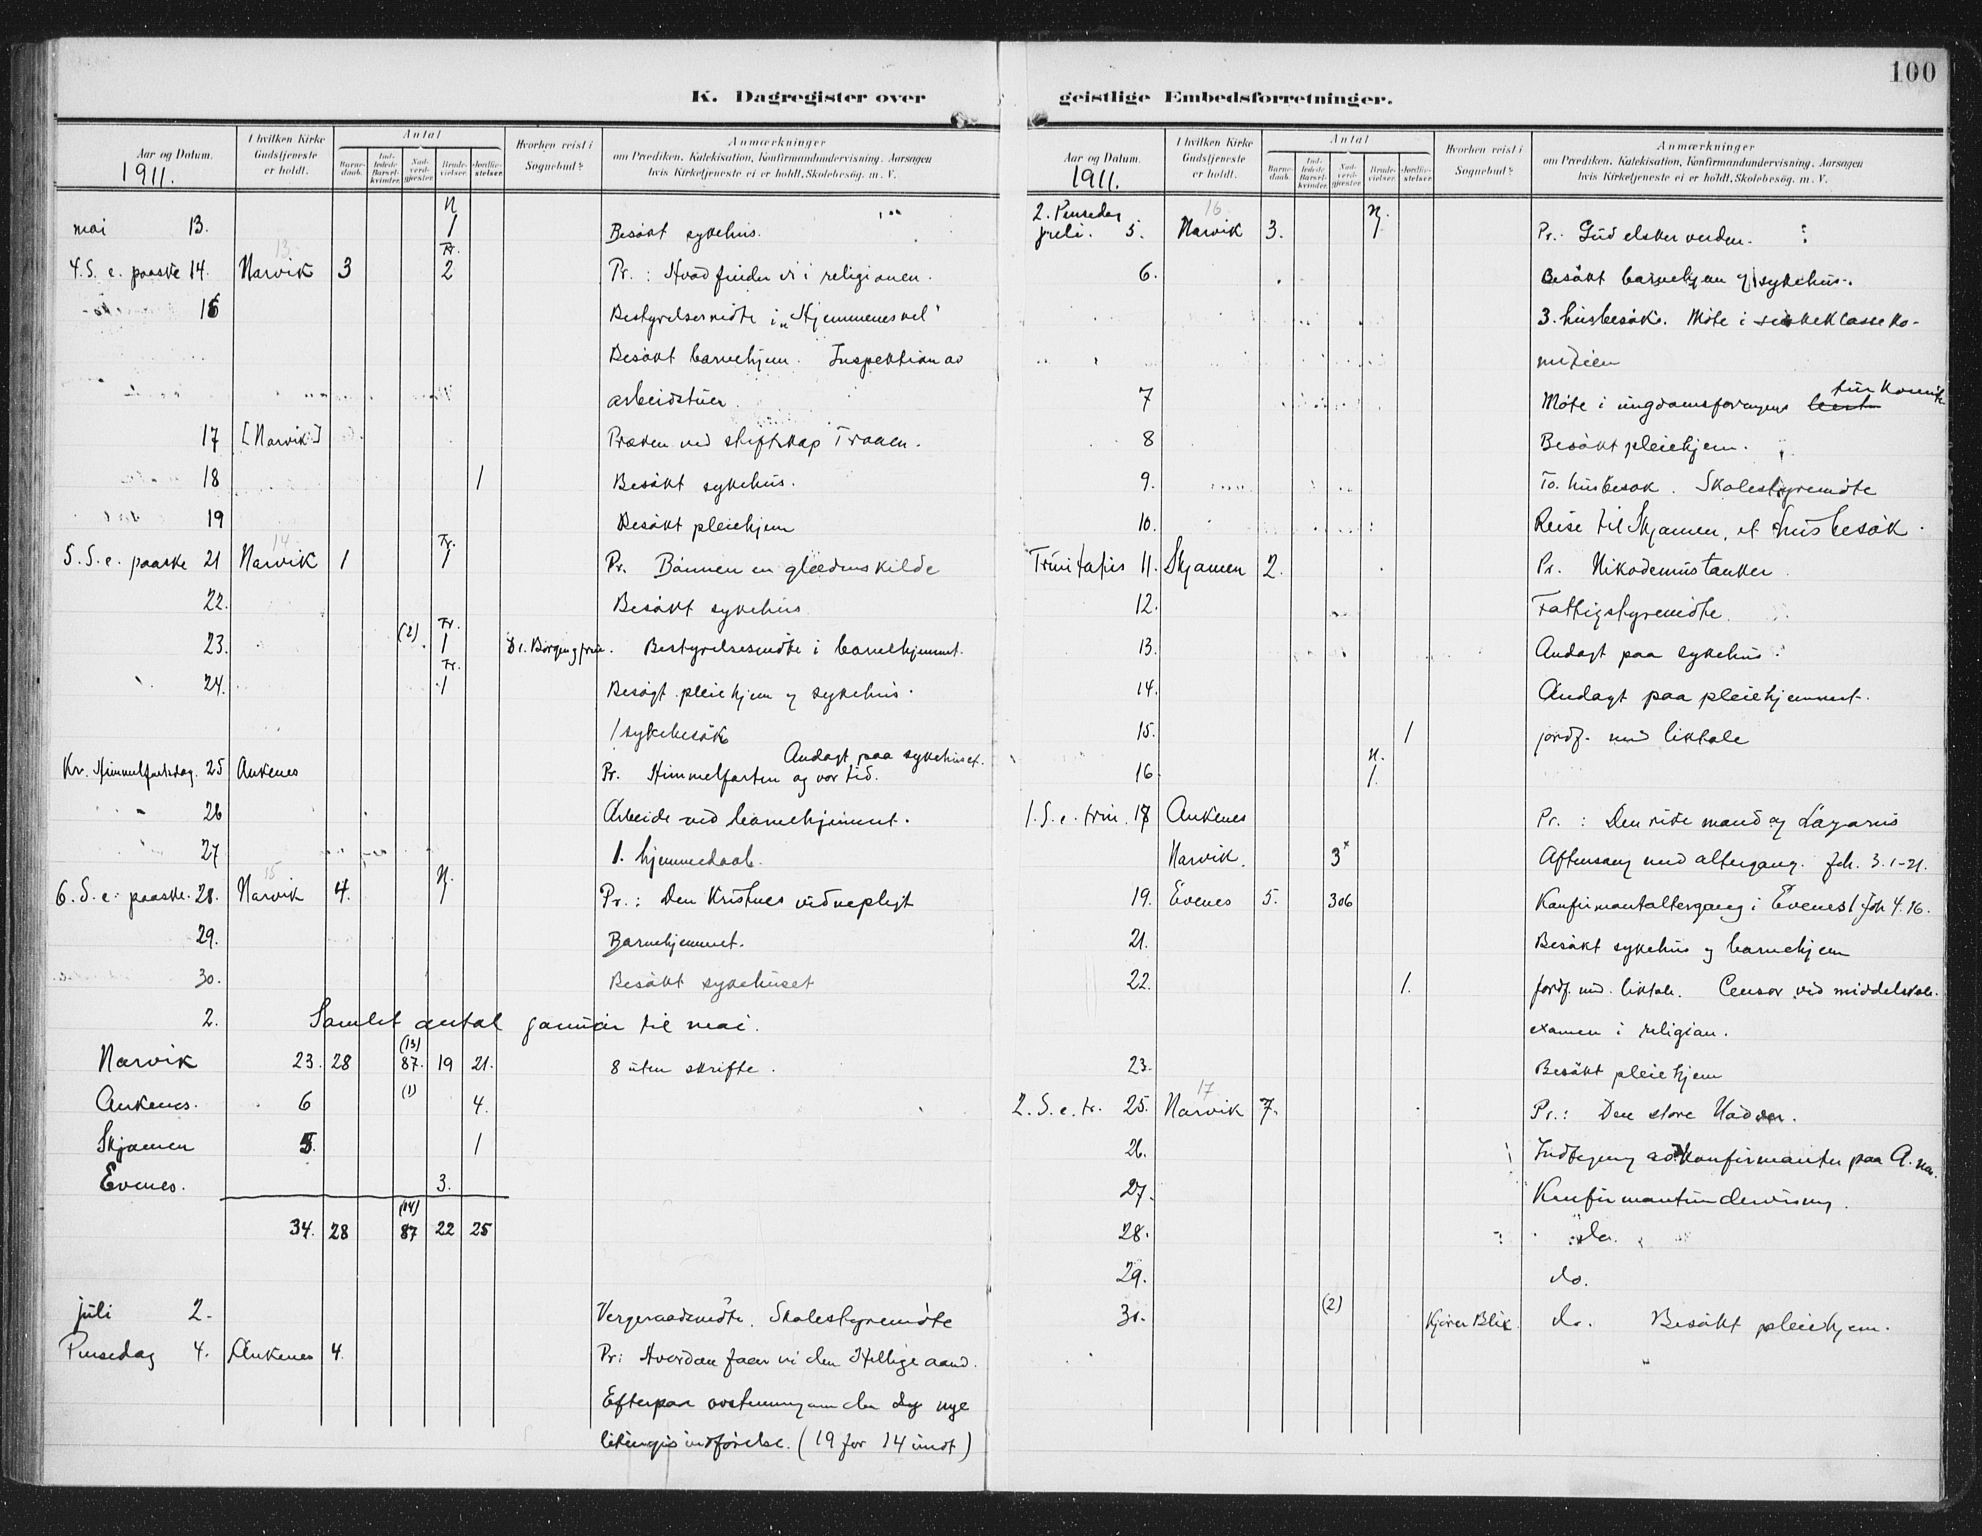 100
K. Dagregister over geistlige Embedsforretninger.
Aar og Datum. 1911.
I hvilken Kirke Gudstjeneste er holdt.
Antal
Barnedaab. Indledede Barselkvinder. Nadverdgjester Brudevielser. Jordfæstelser.
Hvorhen reist i Sognebud?
Anmærkninger
om Prædiken, Katekisation, Konfirmandundervisning, Aarsagen
hvis Kirketjeneste ei er holdt, Skolebesøg, m. V.
N
mai 13. 1 Besøkt sykehus.
13 Fr.
4. S. e. paaske 14. Narvik 3 2 Pr.: Hvad finder vi i religionen.
16 Bestyrelsesmøte i „Hjemmenes vel"
Besøkt barnehjem. Inspektion av
arbeidstuer.
17 [Narvik] Præken ved skiftskap Traaen.
18 1 Besøkt sykehus.
19 Besøkt pleiehjem
14 Fr.
5. S. e. paaske 21 Narvik 1 1 Pr. Bønnen en glædens kilde
22. Besøkt sykehus
Fr.
23. (2). 1 Dr. Borgen g frue. Bestyrelsesmøte i barnehjemmet.
Fr.
24. 1 Besøgt pleiehjem g sykehus.
1 sykebesøk
Andagt paa sykehuset.
Kr. Himmelfartsdag. 25 Ankenes Pr. Himmelfarten og vor tid.
26 Arbeide ved barnehjemmet.
27 1. hjemmedaab.
15 N.
6. S. e. paaske. 28. Narvik 4. 1 Pr.: Den Kristnes vidnepligt
29. Barnehjemmet.
30. Besøkt sykehuset
2. Samlet antal januar til mai.
(13)
Narvik 23. 28 87. 19 21. 8 uten skrifte.
(1)
Ankenes. 6 4.
Skjomen 5. 1
Evenes. 3.
(14)
34. 28 87 22 25
juli 2. Vergeraadsmøte. Skolestyremøte
Pinsedag 4. Ankenes 4. Pr: Hvordan faar vi den Hellige aand.
Efterpaa avstemning om den nye
liturgis indførelse. (19 for 14 imot)
Aar og Datum. 1911.
I hvilken Kirke Gudstjeneste er holdt.
Antal
Barnedaab. Indledede Barselkvinder. Nadverdgjester Brudevielser. Jordfæstelser.
Hvorhen reist i Sognebud?
Anmærkninger
om Prædiken, Katekisation, Konfirmandundervisning, Aarsagen
hvis Kirketjeneste ei er holdt, Skolebesøg, m. V.
2. Pinsedag 16 N.
juli. 5. Narvik 3. 1. Pr. Gud elsker verden.
6. Besøkt barnehjem g sykehus.
3. husbesøk. Møte i
miteen
tur komite
7 Møte i ungdomsforeningens
8 Besøkt pleiehjem.
9. To. husbesøk. Skolestyremøte
10. Reise til Skjomen, et husbesøk.
Trinitatis 11. Skjomen 2. Pr. Nikodemus tanker.
12. Fattigstyremøte.
13. Andagt paa sykehus.
14. Andagt paa pleiehjemmet.
15. 1 jordf. med liktale
N.
16 1.
1. S. e. trin. 18 Ankenes Pr.: Den rike mand og Lazarus
Narvik. 3x Aftensang med altergang. Joh. 3. 1-21.
19. Evenes 5. 306 Konfirmantaltergang i Evenes 1 Joh 4. 16.
21. Besøkt sykehus g barnehjem
22. 1. jordf. med. liktale. Censor ved middelskole-
examen i religion.
23. Besøkt pleiehjem
17
2. S. e. tr. 25. Narvik 7. Pr.: Den store Nadver.
26. Indtegning av konfirmanter paa A. nes.
27. Konfirmantundervisning.
28. do.
29. do.
30. (2) Kjører Blik. do. Besøkt pleiehjem.